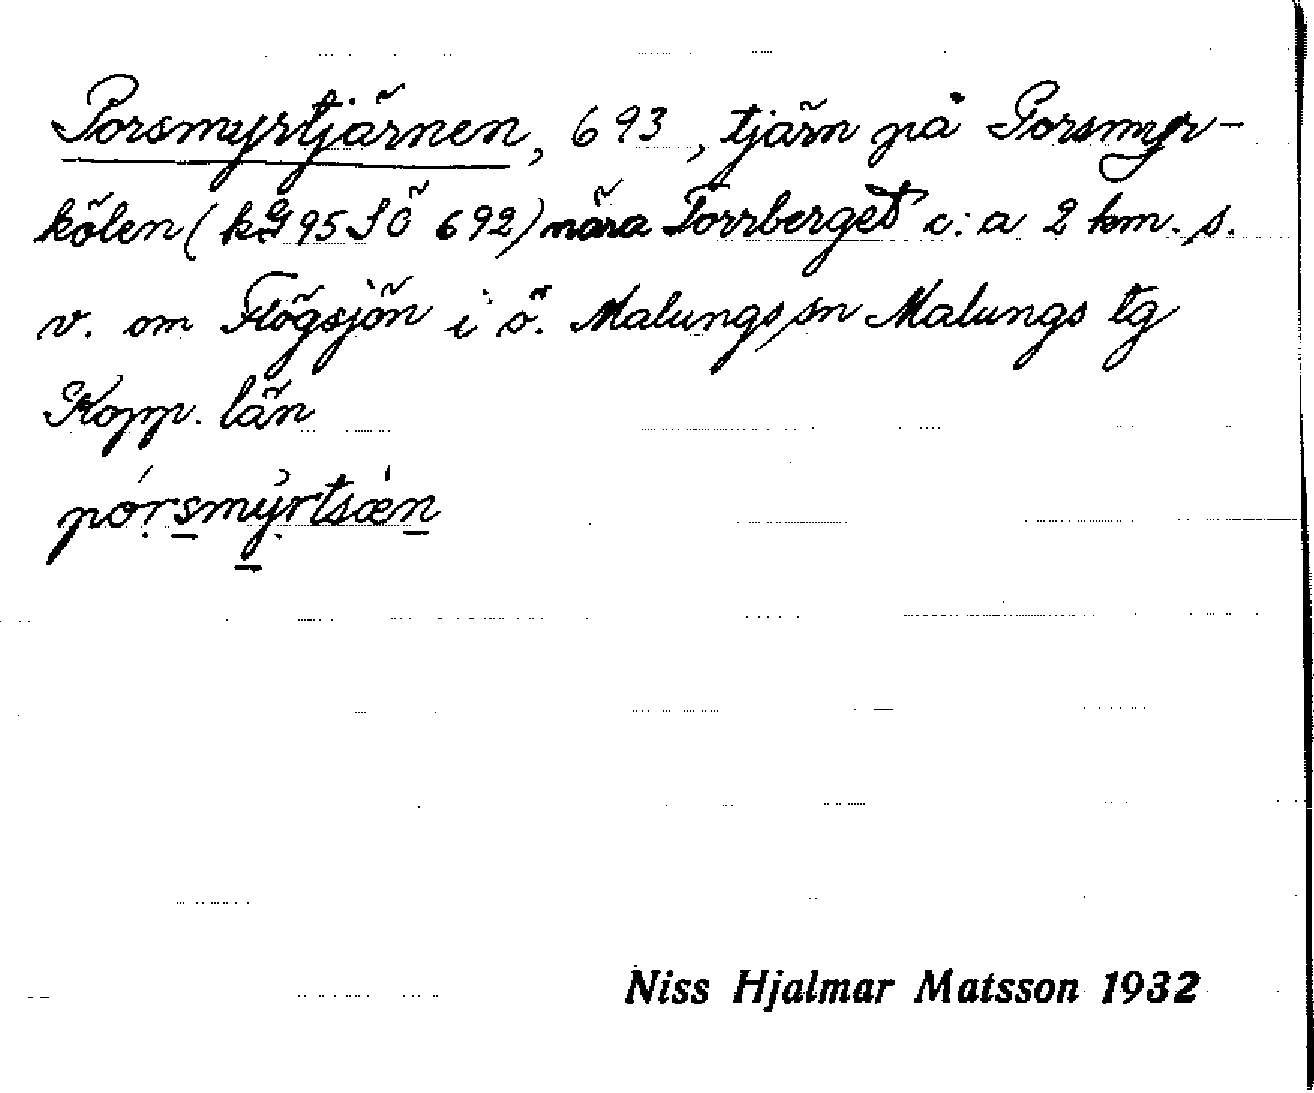 Porsmyrtjärnen, 693, tjärn på Porsmyr-
kölen (kG 95 SÖ 692) nära Torrberget c:a 2 km. s.
v. om Flögsjön i ö. Malungs sn Malungs tg
Kopp. län
pórsmỳrtsæ̀n
Niss Hjalmar Matsson 1932